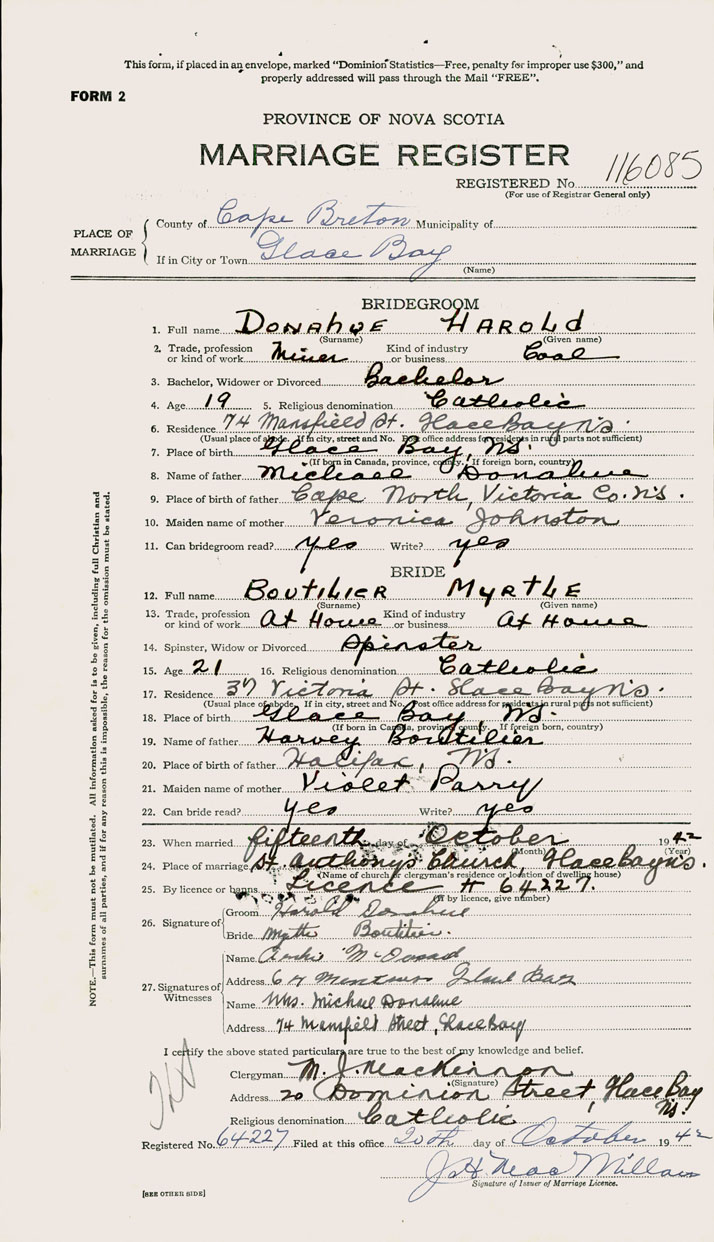 This form, if placed in an envelope, marked "Dominion Statistics—Free, penalty for improper use $300," and
properly addressed will pass through the Mail "FREE".
FORM 2
PROVINCE OF NOVA SCOTIA
MARRIAGE REGISTER
REGISTERED No. 116085
(For use of Registrar General only)
PLACE OF MARRIAGE
County of Cape Breton Municipality of
If in City or Town Glace Bay
(Name)
BRIDEGROOM
1. Full name DONAHUE HAROLD
(Surname) (Given name)
2. Trade, profession or kind of work Miner Kind of industry or business Coal
3. Bachelor, Widower or Divorced Bachelor
4. Age 19 5. Religious denomination Catholic
6. Residence 74 Mansfield St. Glace Bay N.S.
(Usual place of abode. If in city, street and No. Post office address for residents in rural parts not sufficient)
7. Place of birth Glace Bay, N.S.
(If born in Canada, province, county. If foreign born, country)
8. Name of father Michael Donahue
9. Place of birth of father Cape North, Victoria Co. N.S.
10. Maiden name of mother Veronica Johnston
11. Can bridegroom read? yes Write? yes
BRIDE
12. Full name BOUTILIER MYRTLE
(Surname) (Given name)
13. Trade, profession or kind of work At Home Kind of industry or business At Home
14. Spinster, Widow or Divorced Spinster
15. Age 21 16. Religious denomination Catholic
17. Residence 37 Victoria St. Glace Bay N.S.
(Usual place of abode. If in city, street and No. Post office address for residents in rural parts not sufficient)
18. Place of birth Glace Bay, N.S.
(If born in Canada, province, county. If foreign born, country)
19. Name of father Harvey Boutilier
20. Place of birth of father Halifax, N.S.
21. Maiden name of mother Violet Parry
22. Can bride read? yes Write? yes
23. When married fifteenth day of October 1942
(Month) (Year)
24. Place of marriage St. Anthony's Church, Glace Bay N.S.
(Name of church or clergyman's residence or location of dwelling house)
25. By licence or banns Licence # 64227.
(If by licence, give number)
26. Signature of
Groom Harold Donahue
Bride Myrtle Boutilier.
27. Signatures of Witnesses
Name Archie
Address Glace Bay
Name Mrs. Michael Donahue
Address 74 Mansfield Street, Glace Bay
I certify the above stated particulars are true to the best of my knowledge and belief.
Clergyman M. J. MacKinnon
(Signature)
Address 20 Dominion Street, Glace Bay N.S.
Religious denomination Catholic
Registered No. 64227 Filed at this office 20th day of October 1942
J. H. MacMillan
Signature of Issuer of Marriage Licence.
[SEE OTHER SIDE]
NOTE.—This form must not be mutilated. All information asked for is to be given, including full Christian and
surnames of all parties, and if for any reason this is impossible, the reason for the omission must be stated.